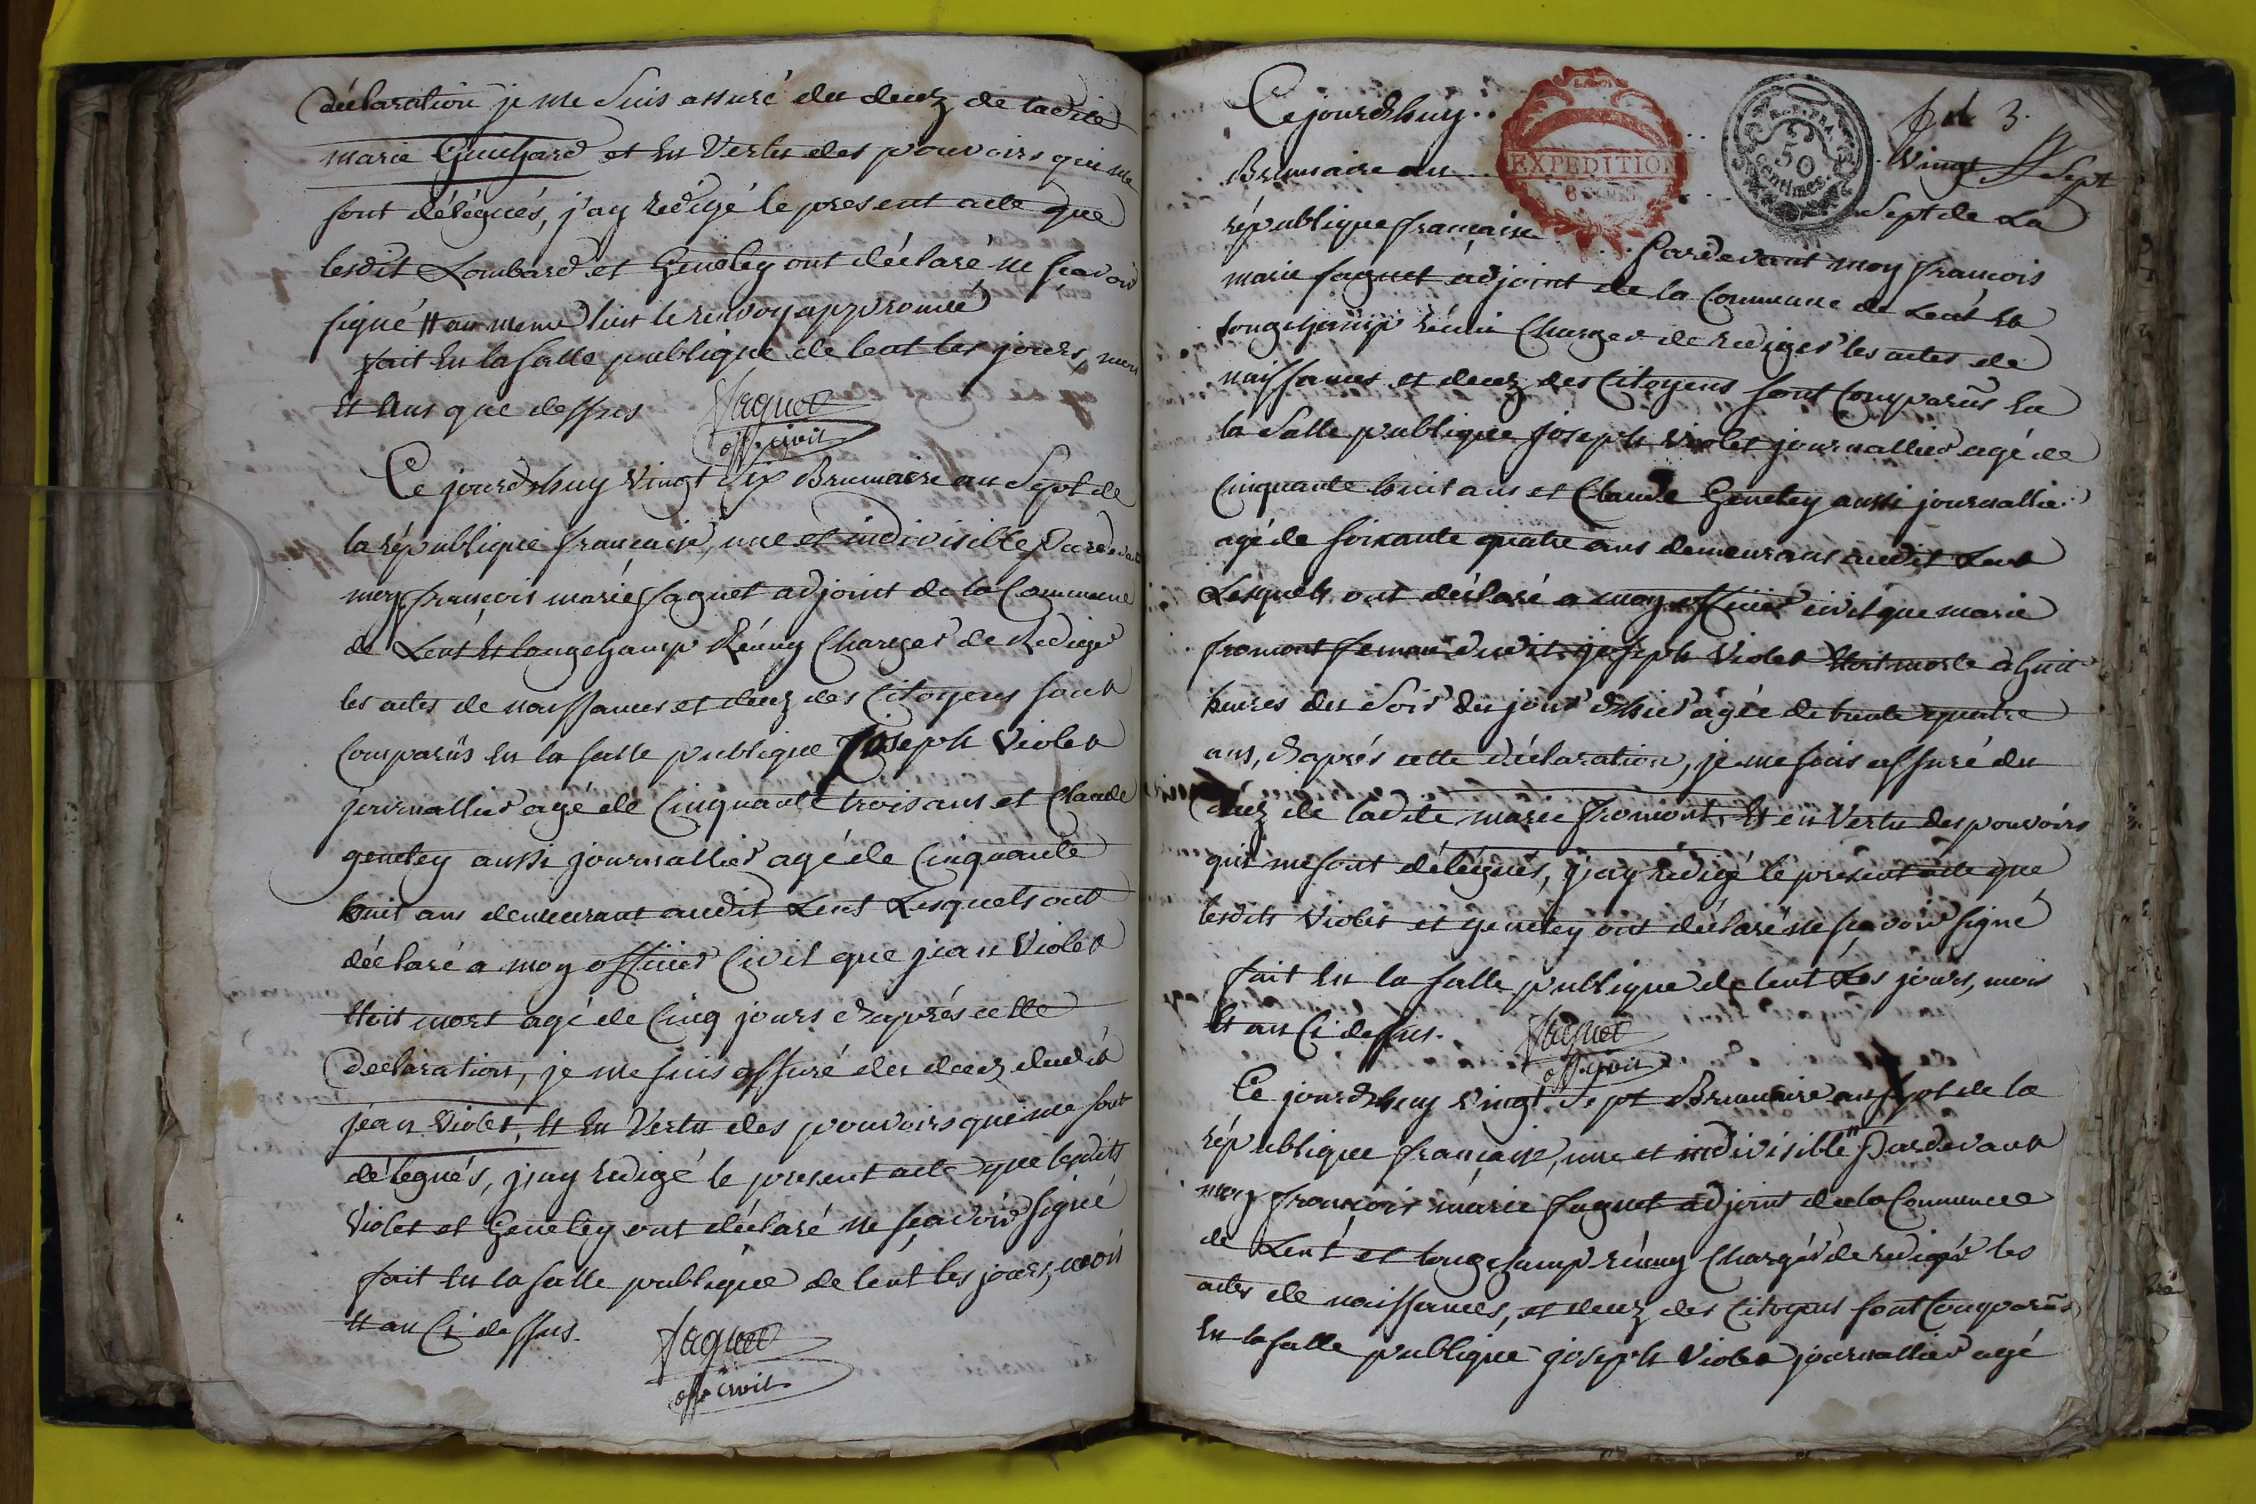 déclaration je me suis assuré du decez de ladite
marie Guichard et En Vertu des pouvoirs qui me
sont délégués, j'ay redigé le present acte que
lesdit Lombard et Geneley ont déclaré ne sçavoir
signé # au meme lieu le renvoy approuvé
fait En la salle publique de lent les jours, mois
Et Ans que dessus Faguet
off. civil
Ce jourdhuy Vingt Six Brumaire an Sept de
la république française, une et indivisible, Pardevant
moy françois marie faguet adjoint de la Commune
de Lent Et longchamp Réuny Charger de Rediger
les actes de naissances et decez des Citoyens sont
Comparûs En la salle publique Joseph Violet
journallier agé de Cinquante trois ans et Claude
geneley aussi journallier agé de Cinquante
huit ans demeurant audit Lent Lesquels ont
déclaré a moy officier Civil que jean Violet
Etoit mort agé de Cinq jours d'aprés cette
Declaration, je me suis assuré du decez dudit
jean Violet, Et En Vertu des pouvoirs qui me sont
délegués, j'ay redigé le present acte que lesdits
Violet et Geneley ont déclaré ne sçavoir signé
fait En la salle publique de lent les jours, mois
Et an Ci dessus. Faguet
off. civil
Ce jourdhuy
EXPEDITION
REP. FRA.
50
Centimes.
3.
Vingt Sept
Brumaire an
Sept de La
république française Pardevant moy françois
marie faguet adjoint de la Commune de Lent Et
longchamp réuni Charger de rediger les actes de
naissances et decez des Citoyens sont Comparûs En
la Salle publique joseph Violet journallier agé de
Cinquante huit ans et Claude Geneley aussi journallier
agé de soixante quatre ans demeurans audit Lent
Lesquels ont déclaré a moy officier civil que marie
fromont femme dudit joseph Violet Etoit morte à huit
heures du Soir du jour d'hier agée de trente quatre
ans, d'aprés cette déclaration, je me suis assuré du
decez de ladite marie fromont, Et en Vertu des pouvoirs
qui me sont délégués, j'ay redigé le present acte que
lesdits Violet et geneley ont déclaré ne sçavoir signé
fait En la salle publique de lent Les jours, mois
Et an Ci dessus. Faguet
off. civil
Ce jourdhuy Vingt Sept Brumaire an Sept de la
république française, une et indivisible Pardevant
moy françois marie faguet adjoint de la Commune
de Lent et longchamp réuny Chargér de redigér les
actes de naissances, et decez des Citoyens sont Comparûs
En la salle publique joseph Violet journallier agé